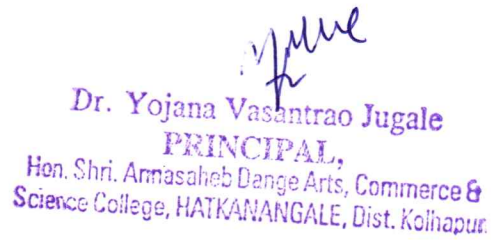 Dr. Yojana Vasantrao Jugale
PRINCIPAL,
Hon. Shri. Annasaheb Dange Arts, Commerce &
Science College, HATKANANGALE, Dist. Kolhapur.